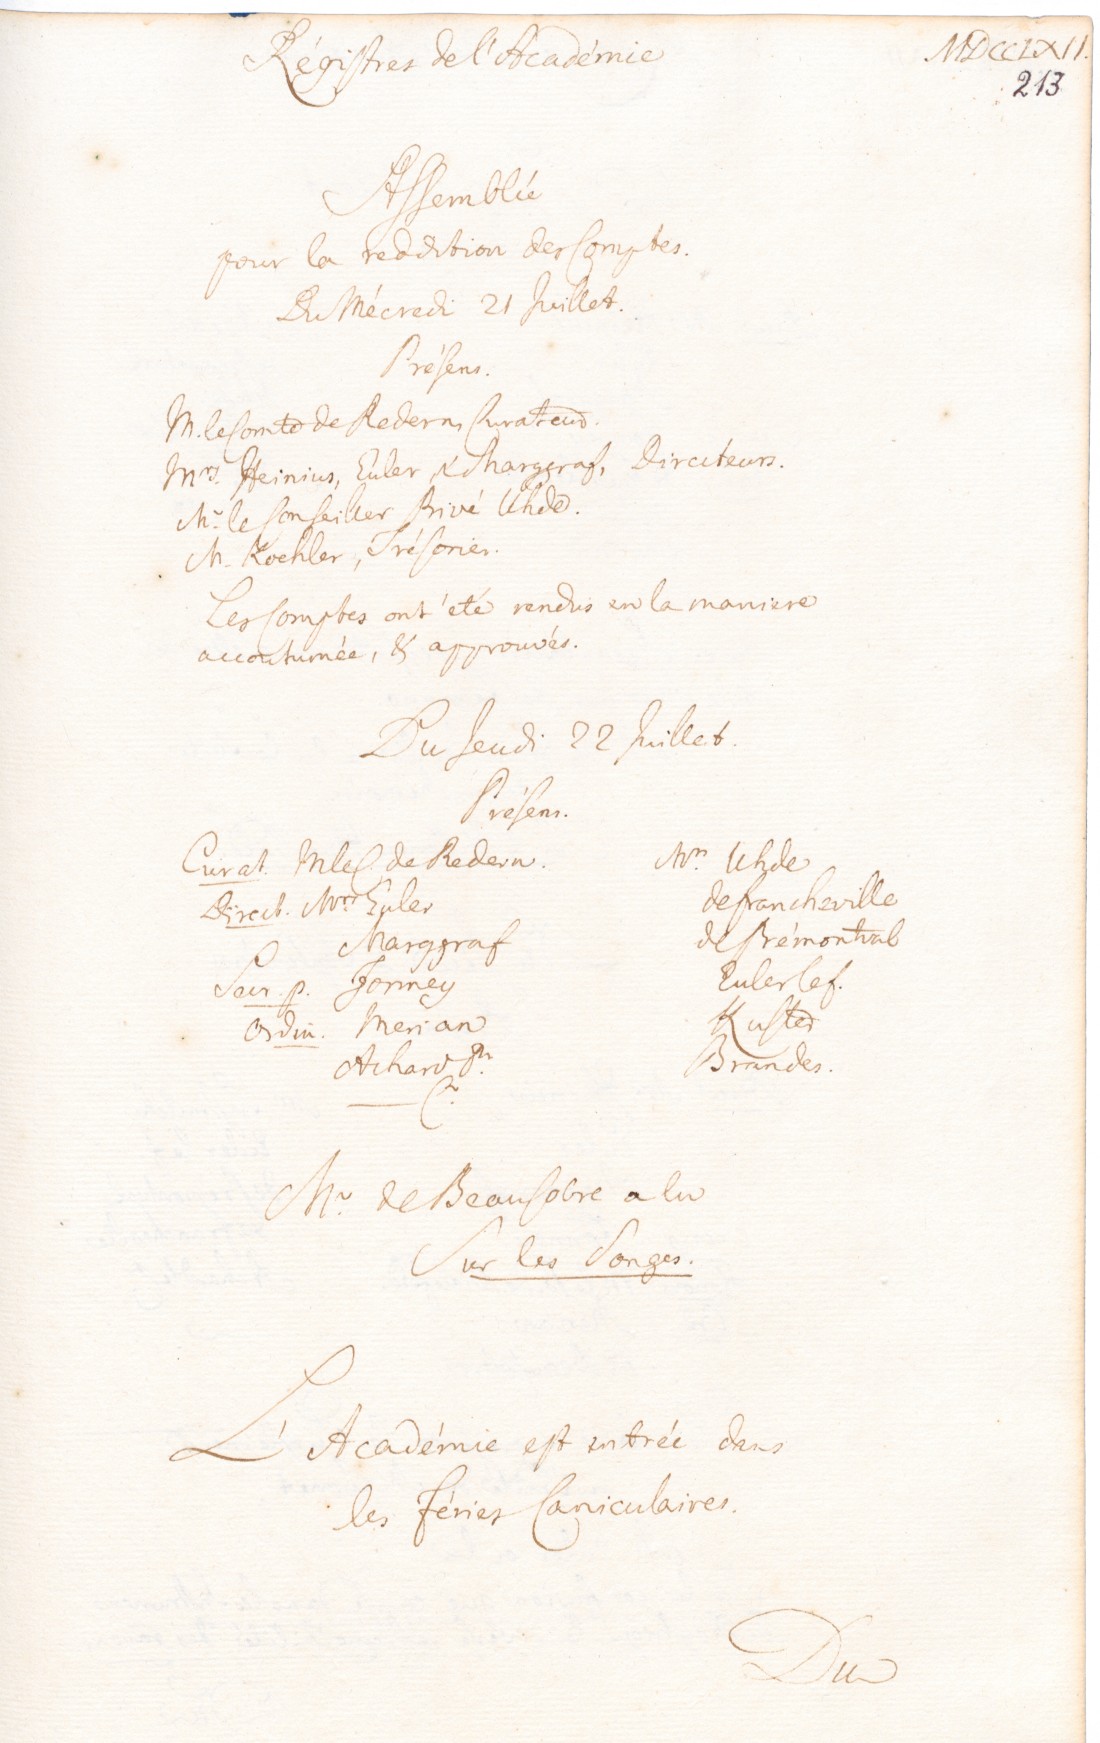 Régistres de l'Académie
MDCCLXII.
213
Assemblée
pour la reddition des Comptes.
Du Mécredi 21 Juillet.
Présens.
M. le Comte de Redern, Curateur.
Mrs. Heinius, Euler & Marggraf, Directeurs.
Mr. le Conseiller Privé Uhde.
M. Koehler, Trésorier.
Les Comptes ont été rendus en la maniere
accoutumée, & approuvés.
Du Jeudi 22 Juillet.
Présens.
Curat. M le C. de Redern.
Direct. Mrs Euler
Marggraf
Secr. p. Formey
Ordin. Merian
Achard Pr.
Mrs. Uhde
de francheville
de Prémontval
Euler le f.
Kuster
Brandes.
Mr. de Beausobre a lu
Sur les Songes.
L'Académie est entrée dans
les Féries Caniculaires.
Du